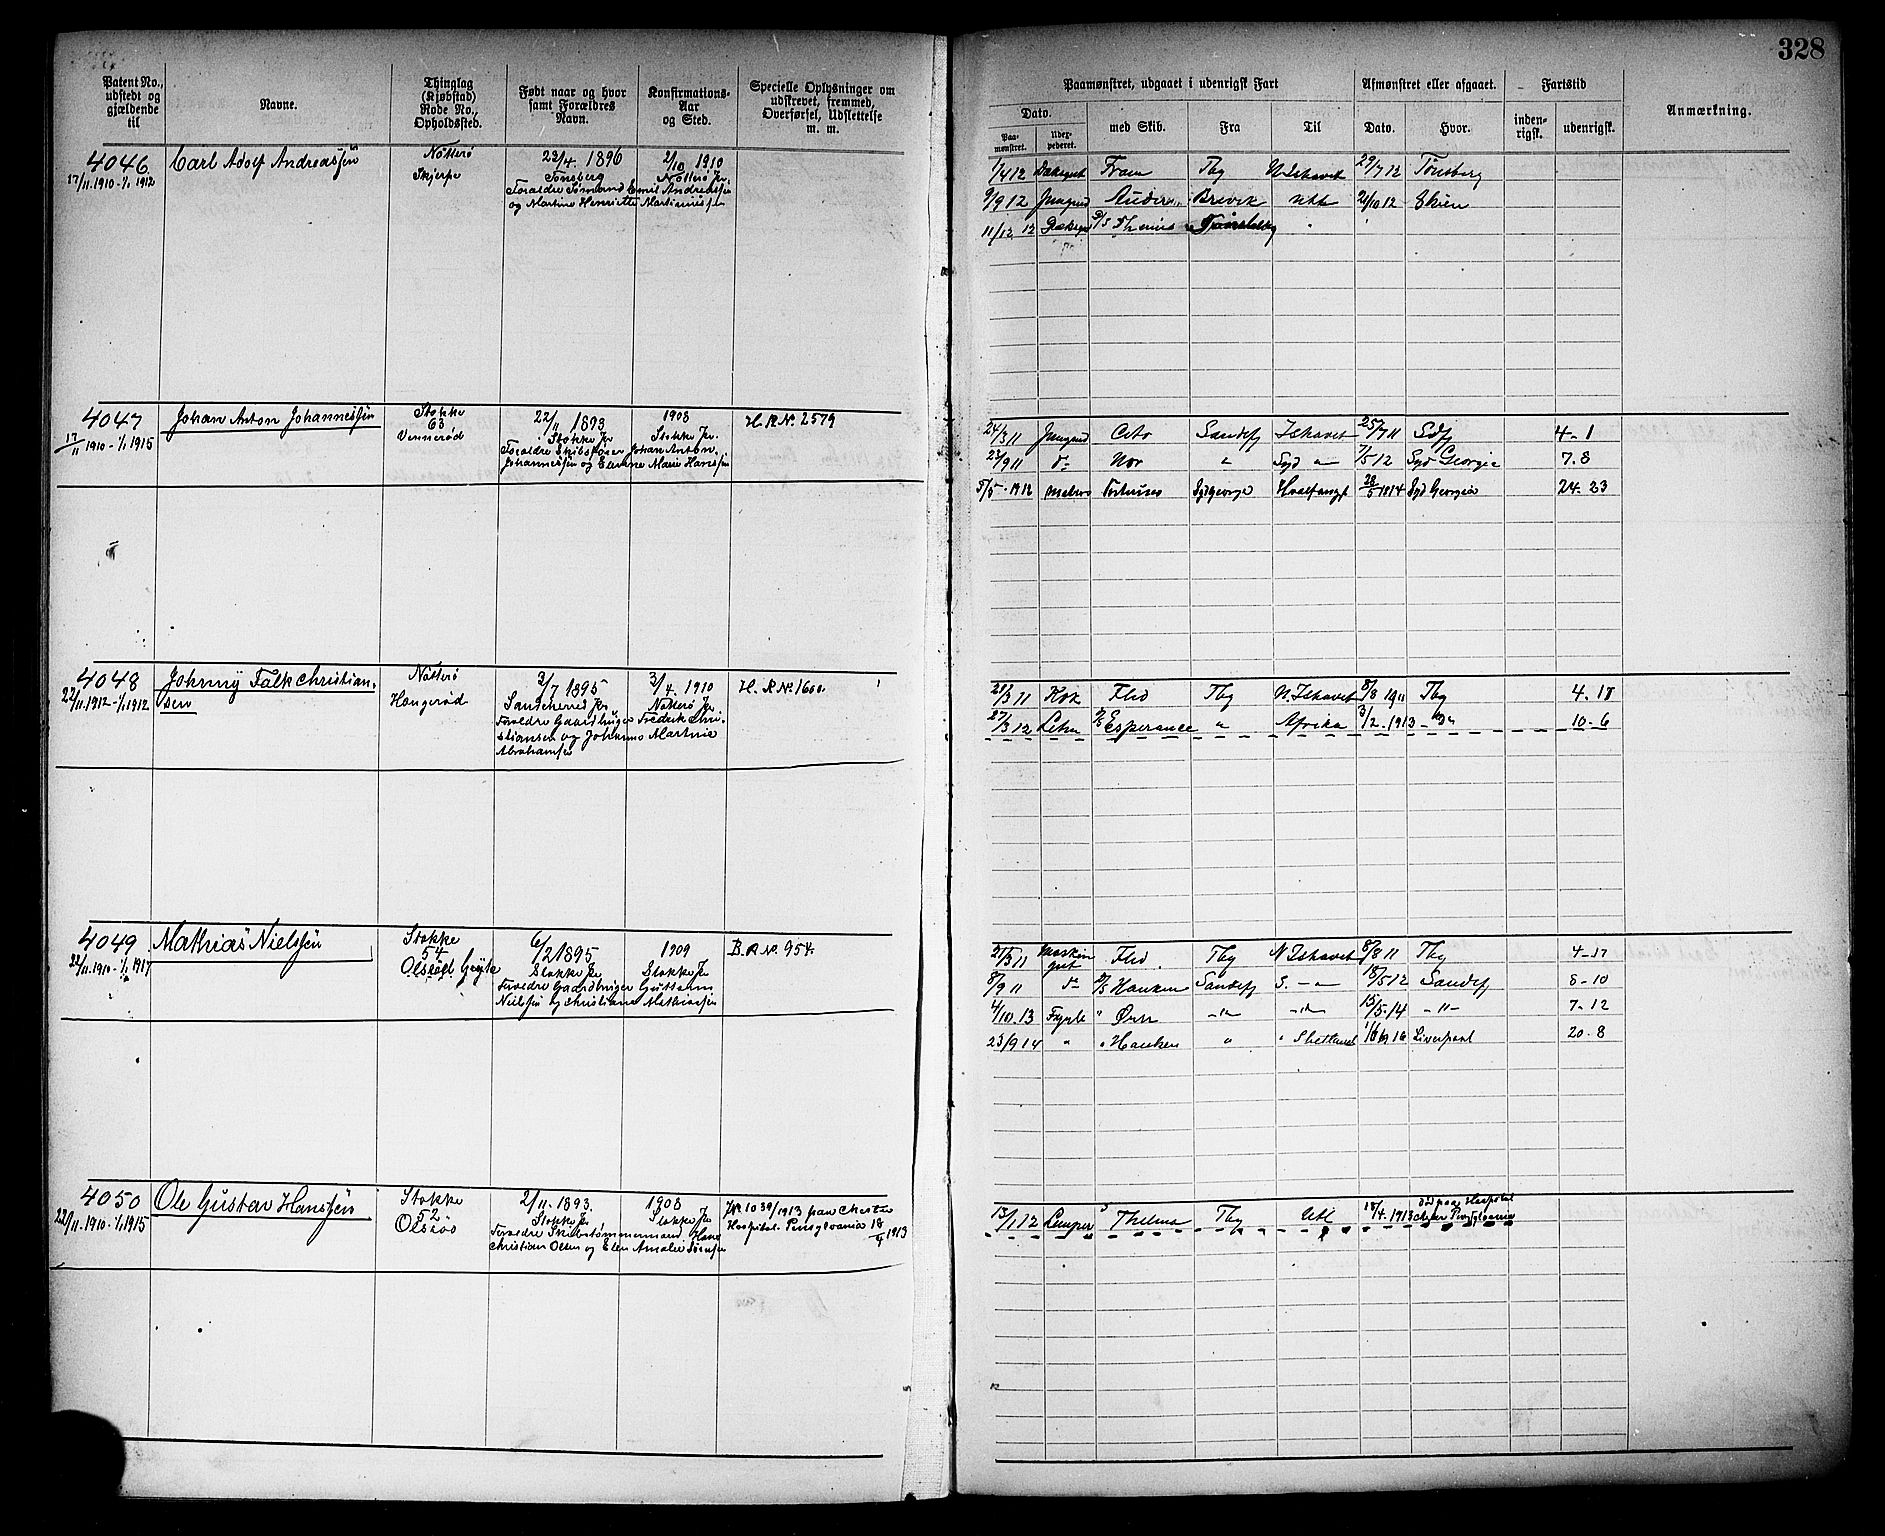 328
Patent No., udstedt og gjældende til
Navne.
Thinglag (Kjøbstad) Rode No., Opholdssted.
Født naar og hvor samt Forældres Navn.
Konfirmations-Aar og Sted.
Specielle Oplysninger om udskrevet, fremmed, Overførsel, Udslettelse m. m.
Paamønstret, udgaaet i udenrigsk Fart
Dato.
Paa-mønstret.
med Skib.
Fra
Til
Afmønstret eller afgaaet.
Dato.
Hvor.
Fartstid
inden-rigsk.
udenrigsk.
Anmærkning.
4046
17/11.1910-1/1.1912
Carl Adolf Andreassen
Nøtterø
Skjerpe
23/4. 1896
Tønsberg
Forældre Sømand Emil Andreassen
og Martine Henriette Martinussen
2/10 1910
Nøtterø Kr.
1/4 12 Dæksgut Fram Tbg N. Ishavet 29/7 12 Tønsberg
9/9 12 Jungmd Brevik 21/10 12 Skien
11/12 12 D/S Themis
4047
17/11 1910-1/1 1915
Johan Anton Johannessen
Stokke
63
Vennerød
22/11 1893
Stokke Kr
Forældre Skibsfører Johan Anton
Johannessen og Marie Hansen
1908
Stokke Kr.
H.R.No. 2579
24/3 11 Jungmd Sandefj Ishavet 25/7 11 Sdfj 4-1
23/9 11 do Nor " Syd " 7/5 12 Syd Georgia 7.8
5/5-1912 matros Sydgeorgia Hvalfangst 28/5 1914 Syd Georgia 24-23
4048
22/11.1912-1/1 1912
Johnny Falk Christian-
sen
Nøtterø
Haugerød
3/7 1895
Sandeherred
Forældre Gaardbruger Fredrik Chri-
stiansen og Johanne Martinie
Abrahamsen
3/4. 1910
Nøtterø Kr
H.R.No. 1600.
21/3 11 Kok Tbg N. Ishavet 8/8 1911 Tbg
27/3 12 Esperance " Afrika 3/2-1913 -"- 10-6
4049
22/11.1910-1/1 1917
Mathias Nielssen
Stokke
54
6/2 1895
Stokke Kr
Forældre Gaardbruger Guttorm
Nielsen og Christiane Mathisen
1909
Stokke Kr
B.R.No. 954.
21/3 11 Maskin
gut Tbg N. Ishavet 8/8 11 Tbg 4-17
8/9 11 do D/S Hauken Sandefj S. -"- 18/5 12 Sandefj 8-10
4/10.13 Fyrb. " Ørn -"- -"- 15/5-14 -"- 7-12
23/9 14 " " Hauken " " Shetland Liverpool 20-8
4050
22/11.1910-1/1 1915
Ole Gustav Hanssen
Stokke
52
Olsrøs
2/11. 1893.
Stokke Kr
Forældre Skibstømmermand Hans
Christian Olsen og Elen Amalie Sørensen
1908
Stokke Kr
JNo 1039/1913 fra Chester
Hospital. Pensylvania 18/4 1913
13/1 12 Lemper Thelma Tbg Utl 18/4.1913 død paa Hospital